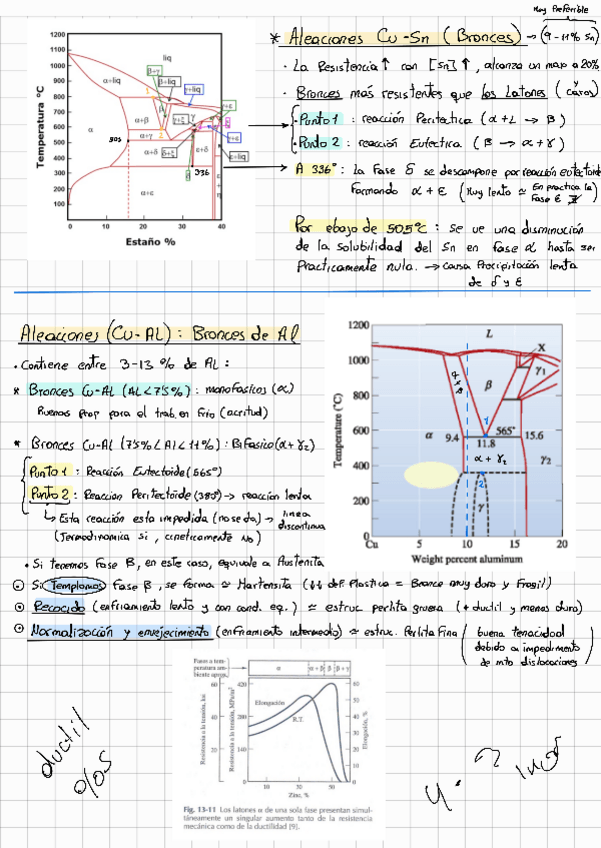 Muy Preferible
* Aleaciones Cu-Sn (Bronces) → (9-11% Sn)
· La Resistencia ↑ con [Sn] ↑, alcanza un max a 20%
· Bronces más resistentes que los Latones (caros)
· Punto 1 : reacción Peritectica (α+L → β)
· Punto 2 : reacción Eutectica (β → α+γ)
A 336° : La Fase δ se descompone por reacción eutectoide
Formando α + ε (Muy lento ≈ En practica la Fase ε ∄)
Por ebajo de 505°c : se ve una disminución
de la solubilidad del Sn en fase α hasta ser
Practicamente nula. → causa Precipitación lenta
de δ y ε
Temperatura °C
1200
1100
1000
900
800
700
600
500
400
300
200
100
0 10 20 30 40
Estaño %
liq
α+liq
β+γ
β+liq
γ+liq
1
2
α
α+β
α+γ
α+δ
δ+ξ
γ+ξ
γ
γ+ε
ε+liq
ε+δ
α+ε
505
336
δ
Aleaciones (Cu-AL) : Bronces de Al
· Contiene entre 3-13 % de AL :
* Bronces Cu-AL (AL<7'5%) : monofasicos (α)
Buenas Prop para el trab. en frio (acritud)
* Bronces Cu-AL (7'5%<Al<11%) : Bifasico (α+γ2)
Punto 1 : Reacción Eutectoide (565°)
Punto 2 : Reaccion Peritectoide (380°) → reacción lenta
↳ Esta reacción esta impedida (no se da) → linea discontinua
(Termodinamica si, cineticamente no)
• Si tenemos Fase β, en este caso, equivale a Austenita
⊙ Si Templamos Fase β, se forma ≈ Martensita (↓↓ def. Plastica = Bronce muy duro y Fragil)
⊙ Recocido (enfriamiento lento y con cond. eq.) ≈ estruc perlita gruesa (+ ductil y menos duro)
⊙ Normalización y envejecimiento (enfriamiento intermedio) ≈ estruc. Perlita Fina (buena tenacidad
debido a impedimento
de mto dislocaciones)
Temperature (°C)
1200
1000
800
600
400
200
0
Cu 5 10 15 20
Weight percent aluminum
L
X
α+β
β
γ1
1
α
9.4
565°
15.6
11.8
α + γ2
γ2
2
γ
Fases a temperatura ambiente aprox.
α
α+β
β
β+γ
Resistencia a la tensión, ksi
Resistencia a la tensión, MPa/m²
Elongación, %
Elongación
R.T.
10 30 50
Zinc, %
Fig. 13-11 Los latones α de una sola fase presentan simul-
táneamente un singular aumento tanto de la resistencia
mecánica como de la ductilidad [9].
ductil